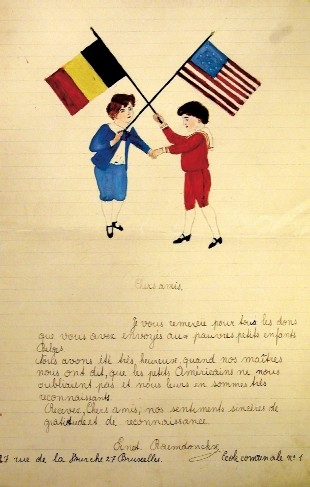 Chers amis,
Je vous remercie pour tous les dons
que vous avez envoyés aux pauvres petits enfants
Belges
Nous avons été très, heureux, quand nos maîtres
nous ont dit, que les petits Américains ne nous
oubliaient pas et nous leurs en sommes très
reconnaissants.
Recevez, Chers amis, nos sentiments sincères de
gratitude et de reconnaissance.
Ernest
27 rue de la 27 Bruxelles. Ecole communale no 1